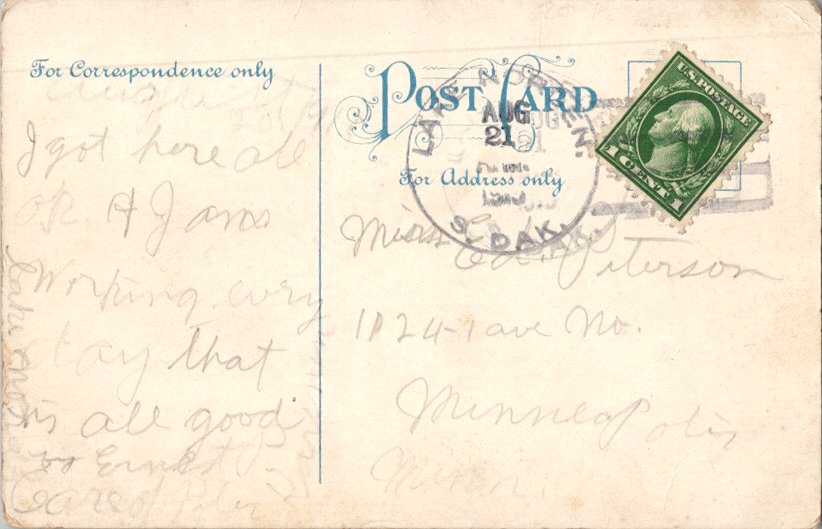 For Correspondence only
I got here all
OK & I am
Working every
day that
is all good
Ernest P.
Care of
Lake Nor
POST CARD
For Address only
LAKE NORDEN.
AUG
21
S. DAK.
U.S. POSTAGE
1 CENT 1
Miss Peterson
1824-1 ave No.
Minneapolis
Minn.